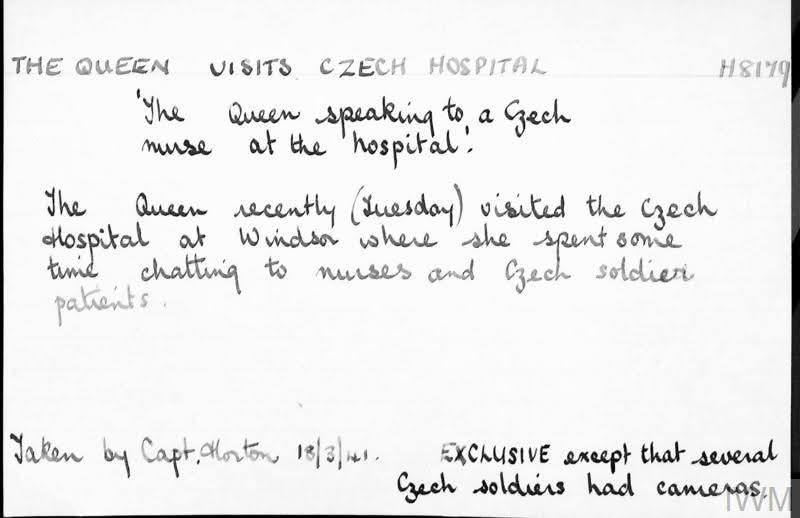 THE QUEEN VISITS CZECH HOSPITAL H8179
'The Queen speaking to a Czech
nurse at the hospital'.
The Queen recently (Tuesday) visited the Czech
Hospital at Windsor where she spent some
time chatting to nurses and Czech soldier
patients.
Taken by Capt. Horton 18/3/41. EXCLUSIVE except that several
Czech soldiers had cameras.
IWM